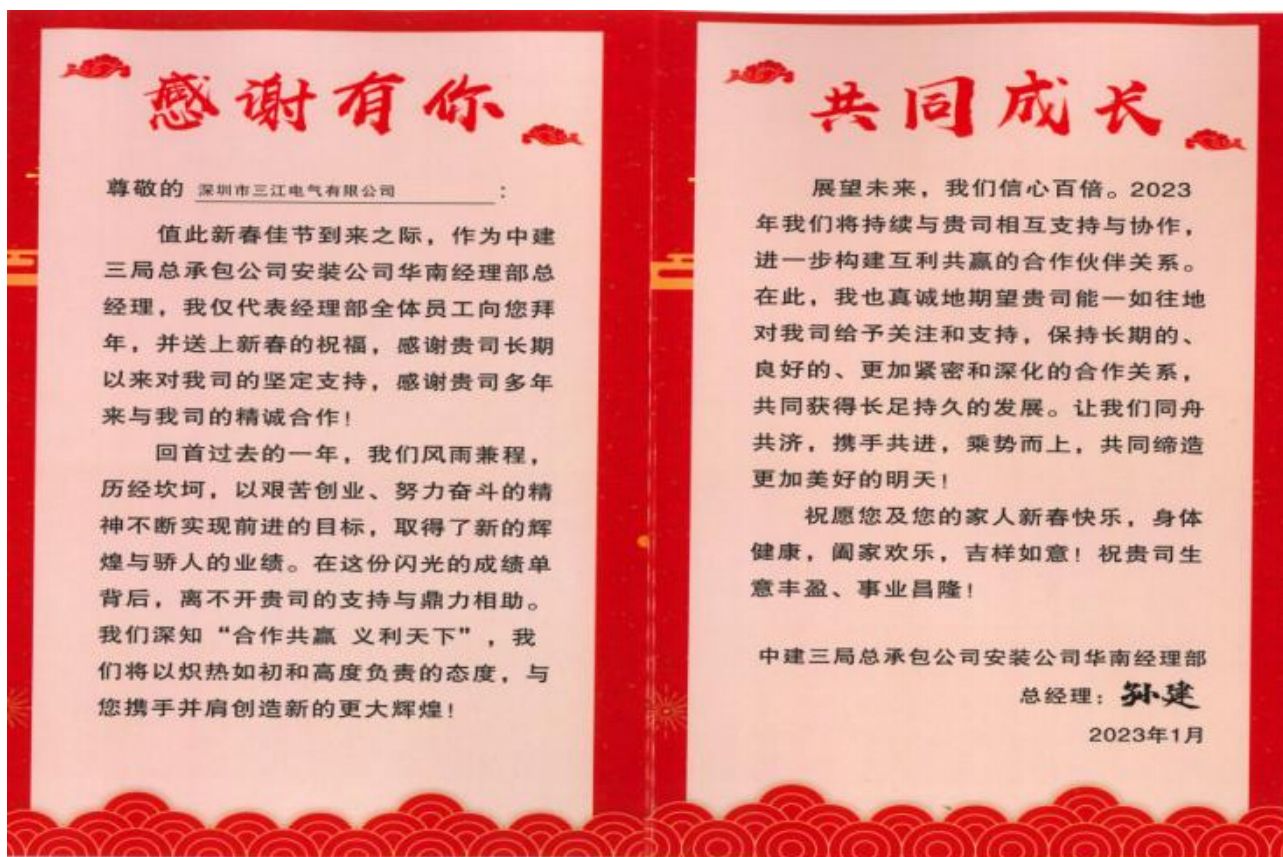 感谢有你
尊敬的 深圳市三江电气有限公司 :
值此新春佳节到来之际，作为中建
三局总承包公司安装公司华南经理部总
经理，我仅代表经理部全体员工向您拜
年，并送上新春的祝福，感谢贵司长期
以来对我司的坚定支持，感谢贵司多年
来与我司的精诚合作！
回首过去的一年，我们风雨兼程，
历经坎坷，以艰苦创业、努力奋斗的精
神不断实现前进的目标，取得了新的辉
煌与骄人的业绩。在这份闪光的成绩单
背后，离不开贵司的支持与鼎力相助。
我们深知“合作共赢 义利天下”，我
们将以炽热如初和高度负责的态度，与
您携手并肩创造新的更大辉煌！
共同成长
展望未来，我们信心百倍。2023
年我们将持续与贵司相互支持与协作，
进一步构建互利共赢的合作伙伴关系。
在此，我也真诚地期望贵司能一如往地
对我司给予关注和支持，保持长期的、
良好的、更加紧密和深化的合作关系，
共同获得长足持久的发展。让我们同舟
共济，携手共进，乘势而上，共同缔造
更加美好的明天！
祝愿您及您的家人新春快乐，身体
健康，阖家欢乐，吉祥如意！祝贵司生
意丰盈、事业昌隆！
中建三局总承包公司安装公司华南经理部
总经理：孙建
2023年1月